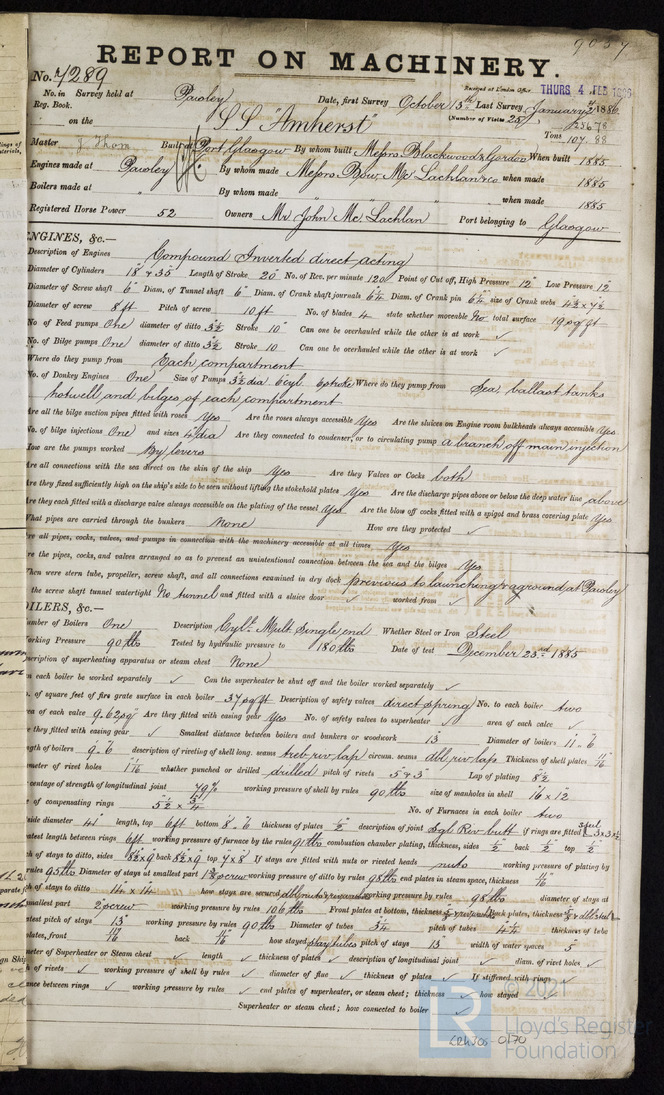 9057
REPORT ON MACHINERY.
No. 7289
Received at London Office THURS 4 FEB 1886
No. in Survey held at Paisley Date, first Survey October 15th Last Survey January 2 1886
Reg. Book. (Number of Visits 25)
on the S.S "Amherst" Tons 256.78 107.88
Master J. Thom Built at Port Glasgow By whom built Messrs Blackwood & Gordon When built 1885
Engines made at Paisley By whom made Messrs Bow, Mc Lachlan & co when made 1885
Boilers made at " By whom made " when made 1885
Registered Horse Power 52 Owners Mr John Mc Lachlan Port belonging to Glasgow
ENGINES, &c.—
Description of Engines Compound Inverted direct acting
Diameter of Cylinders 18" & 35" Length of Stroke 20" No. of Rev. per minute 120 Point of Cut off, High Pressure 12" Low Pressure 12"
Diameter of Screw shaft 6" Diam. of Tunnel shaft 6" Diam. of Crank shaft journals 6¼ Diam. of Crank pin 6¼ size of Crank webs 4½ x 7½
Diameter of screw 8 ft Pitch of screw 10 ft No. of blades 4 state whether moveable No total surface 19 sq ft
No of Feed pumps One diameter of ditto 3½ Stroke 10" Can one be overhauled while the other is at work ✓
No. of Bilge pumps One diameter of ditto 3½ Stroke 10 Can one be overhauled while the other is at work ✓
Where do they pump from Each compartment
No. of Donkey Engines One Size of Pumps 3½ dia 6 cyl. 6 stroke Where do they pump from Sea, ballast tanks
hotwell and bilges of each compartment
Are all the bilge suction pipes fitted with roses Yes Are the roses always accessible Yes Are the sluices on Engine room bulkheads always accessible Yes
No. of bilge injections One and sizes 4 dia Are they connected to condenser, or to circulating pump a branch off main injection
How are the pumps worked By levers
Are all connections with the sea direct on the skin of the ship Yes Are they Valves or Cocks both
Are they fixed sufficiently high on the ship's side to be seen without lifting the stokehold plates Yes Are the discharge pipes above or below the deep water line above
Are they each fitted with a discharge valve always accessible on the plating of the vessel Yes Are the blow off cocks fitted with a spigot and brass covering plate Yes
What pipes are carried through the bunkers None How are they protected ✓
Are all pipes, cocks, valves, and pumps in connection with the machinery accessible at all times Yes
Are the pipes, cocks, and valves arranged so as to prevent an unintentional connection between the sea and the bilges Yes
When were stern tube, propeller, screw shaft, and all connections examined in dry dock previous to launching & aground at Paisley
the screw shaft tunnel watertight No tunnel and fitted with a sluice door ✓ worked from ✓
BOILERS, &c.—
Number of Boilers One Description Cyl. Mult Single end Whether Steel or Iron Steel
Working Pressure 90 lbs Tested by hydraulic pressure to 180 lbs Date of test December 23rd 1885
Description of superheating apparatus or steam chest None
Can each boiler be worked separately ✓ Can the superheater be shut off and the boiler worked separately ✓
No. of square feet of fire grate surface in each boiler 37 sq ft Description of safety valves direct spring No. to each boiler two
area of each valve 9.62 sq" Are they fitted with easing gear Yes No. of safety valves to superheater ✓ area of each valve ✓
are they fitted with easing gear ✓ Smallest distance between boilers and bunkers or woodwork 13 Diameter of boilers 11-6
Length of boilers 9-6 description of riveting of shell long. seams treb. riv. lap circum. seams dbl. riv. lap Thickness of shell plates 11/16
diameter of rivet holes 1 1/16 whether punched or drilled drilled pitch of rivets Lap of plating 8½
percentage of strength of longitudinal joint working pressure of shell by rules 90 lbs size of manholes in shell 16 x 12
size of compensating rings 5½ x ¾ No. of Furnaces in each boiler two
outside diameter length, top 6 ft bottom 8-6 thickness of plates ½ description of joint dgl Riv butt if rings are fitted steel 3x3x½
greatest length between rings 6 ft working pressure of furnace by the rules 91 lbs combustion chamber plating, thickness, sides ½ back ½ top ½
pitch of stays to ditto, sides 8½ x 9 back 8½ x 9 top 7 x 8 If stays are fitted with nuts or riveted heads nuts working pressure of plating by
rules 95 lbs Diameter of stays at smallest part working pressure of ditto by rules 98 lbs end plates in steam space, thickness 11/16
pitch of stays to ditto 14 x 14 how stays are secured working pressure by rules 98 lbs diameter of stays at
smallest part 2" screw working pressure by rules 106 lbs Front plates at bottom, thickness Back plates, thickness
greatest pitch of stays 13" working pressure by rules 90 lbs Diameter of tubes 3¼ pitch of tubes 4¼ thickness of tube
plates, front 11/16 back 11/16 how stayed stay tubes pitch of stays 13 width of water spaces 5
Diameter of Superheater or Steam chest ✓ length ✓ thickness of plates ✓ description of longitudinal joint ✓ diam. of rivet holes ✓
pitch of rivets ✓ working pressure of shell by rules ✓ diameter of flue ✓ thickness of plates ✓ If stiffened with rings ✓
distance between rings ✓ working pressure by rules ✓ end plates of superheater, or steam chest; thickness ✓ how stayed ✓
Superheater or steam chest; how connected to boiler ✓
LR
© 2021
Lloyd's Register
Foundation